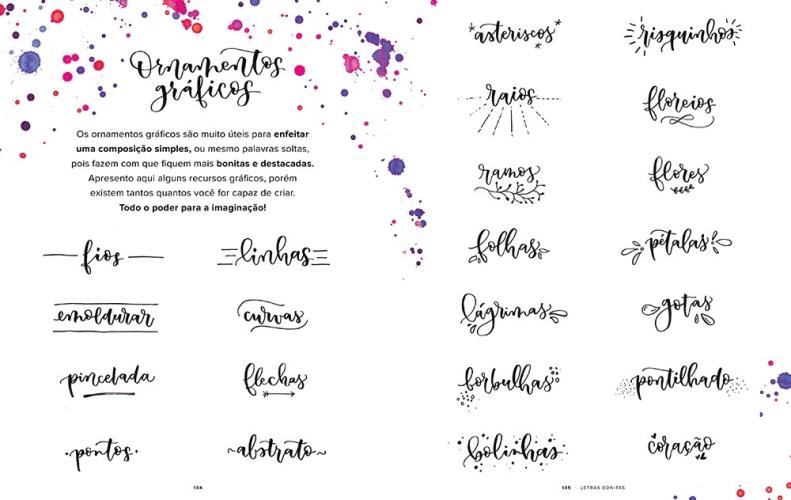 Ornamentos
gráficos
Os ornamentos gráficos são muito úteis para enfeitar
uma composição simples, ou mesmo palavras soltas,
pois fazem com que fiquem mais bonitas e destacadas.
Apresento aqui alguns recursos gráficos, porém
existem tantos quantos você for capaz de criar.
Todo o poder para a imaginação!
fios
linhas
emoldurar
curvas
pincelada
flechas
pontos
abstrato
134
asteriscos
risquinhos
raios
floreios
ramos
flores
folhas
pétalas
lágrimas
gotas
borbulhas
pontilhado
bolinhas
coração
135 LETRAS BONITAS